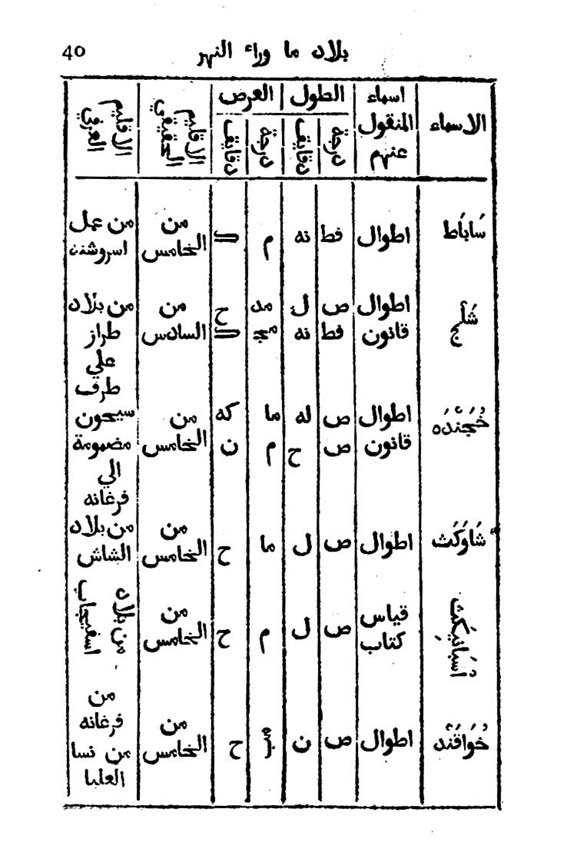 40 بلاد ما وراء النهر
الاسماء
اسماء
المنقول
عنهم
الطول
درجة
دقايف
العرض
درجة
دقايف
الاقليم
الحقيقي
الاقليم
العرفي
سَابَاط
اطوال
فط
نه
م
ك
من
الخامس
من عمل
اسروشنه
شَلْج
اطوال
قانون
ص
فط
ل
نه
مد
ح
ك
من
السادس
من بلاد
طراز
خُجَنْدَه
اطوال
قانون
ص
ص
له
ح
ما
م
كه
ن
من
الخامس
علي
طرف
سيحون
مضمومة
الي
فرغانه
شَاوَكَث
اطوال
ص
ل
ما
ح
من
الخامس
من بلاد
الشاش
اُسْبَانِيكَث
قياس
كتاب
ص
ل
م
ح
من
الخامس
من بلاد
اسفيجاب
خُوَاقَنْد
اطوال
ص
ن
ح
من
الخامس
من
فرغانه
من نسا
العليا